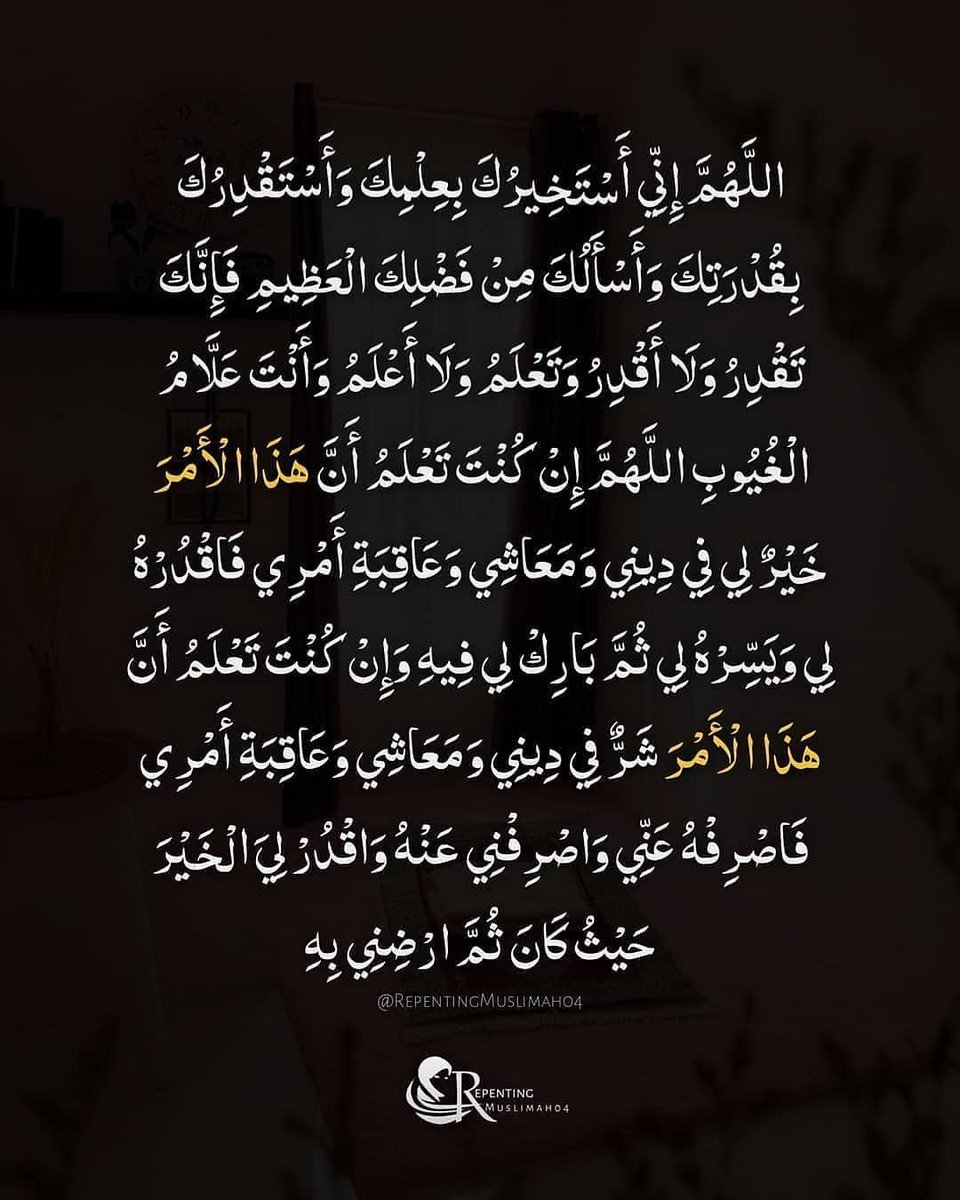 اللَّهُمَّ إِنِّي أَسْتَخِيرُكَ بِعِلْمِكَ وَأَسْتَقْدِرُكَ
بِقُدْرَتِكَ وَأَسْأَلُكَ مِنْ فَضْلِكَ الْعَظِيمِ فَإِنَّكَ
تَقْدِرُ وَلَا أَقْدِرُ وَتَعْلَمُ وَلَا أَعْلَمُ وَأَنْتَ عَلَّامُ
الْغُيُوبِ اللَّهُمَّ إِنْ كُنْتَ تَعْلَمُ أَنَّ هَذَا الْأَمْرَ
خَيْرٌ لِي فِي دِينِي وَمَعَاشِي وَعَاقِبَةِ أَمْرِي فَاقْدُرْهُ
لِي وَيَسِّرْهُ لِي ثُمَّ بَارِكْ لِي فِيهِ وَإِنْ كُنْتَ تَعْلَمُ أَنَّ
هَذَا الْأَمْرَ شَرٌّ فِي دِينِي وَمَعَاشِي وَعَاقِبَةِ أَمْرِي
فَاصْرِفْهُ عَنِّي وَاصْرِفْنِي عَنْهُ وَاقْدُرْ لِيَ الْخَيْرَ
حَيْثُ كَانَ ثُمَّ ارْضِنِي بِهِ
@RepentingMuslimah04
Repenting
Muslimah04